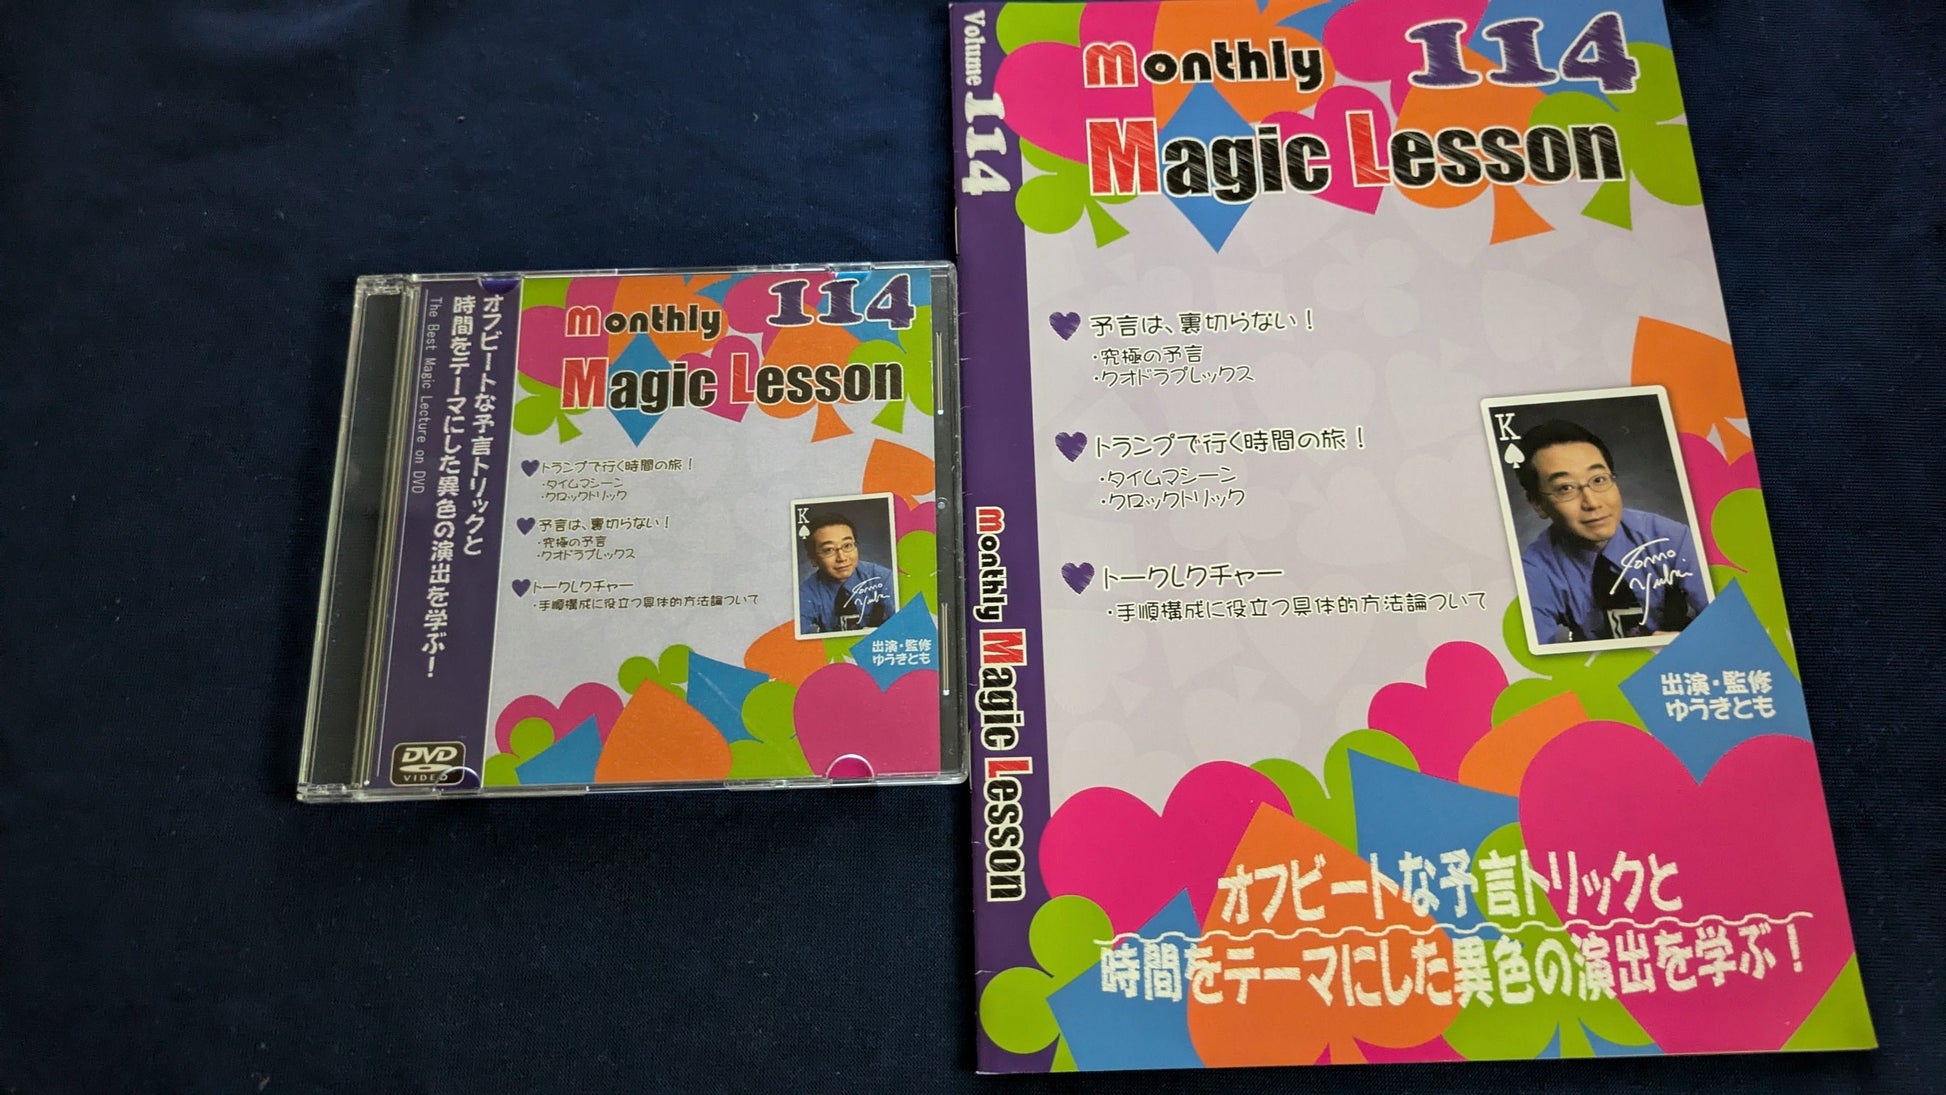 オフビートな予言トリックと
時間をテーマにした異色の演出を学ぶ！
The Best Magic Lecture on DVD
DVD
VIDEO
monthly 114
Magic Lesson
トランプで行く時間の旅！
・タイムマシーン
・クロックトリック
予言は、裏切らない！
・究極の予言
・クオドラプレックス
トークレクチャー
・手順構成に役立つ具体的方法論ついて
K
Tomo.
Yuki
出演・監修
ゆうきとも
Volume 114
monthly Magic Lesson
monthly 114
Magic Lesson
予言は、裏切らない！
・究極の予言
・クオドラプレックス
トランプで行く時間の旅！
・タイムマシーン
・クロックトリック
トークレクチャー
・手順構成に役立つ具体的方法論ついて
K
Tomo.
Yuki
出演・監修
ゆうきとも
オフビートな予言トリックと
時間をテーマにした異色の演出を学ぶ！